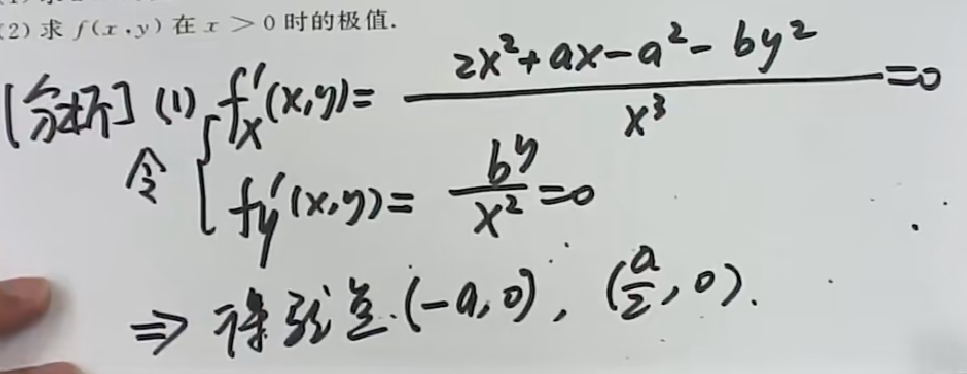 (2) 求 f(x,y) 在 x > 0 时的极值.
[分析] (1) f'x(x,y) = (2x²+ax-a²-by²)/x³ = 0
令 { f'y(x,y) = by/x² = 0
⇒ 得驻点 (-a,0), (a/2,0).